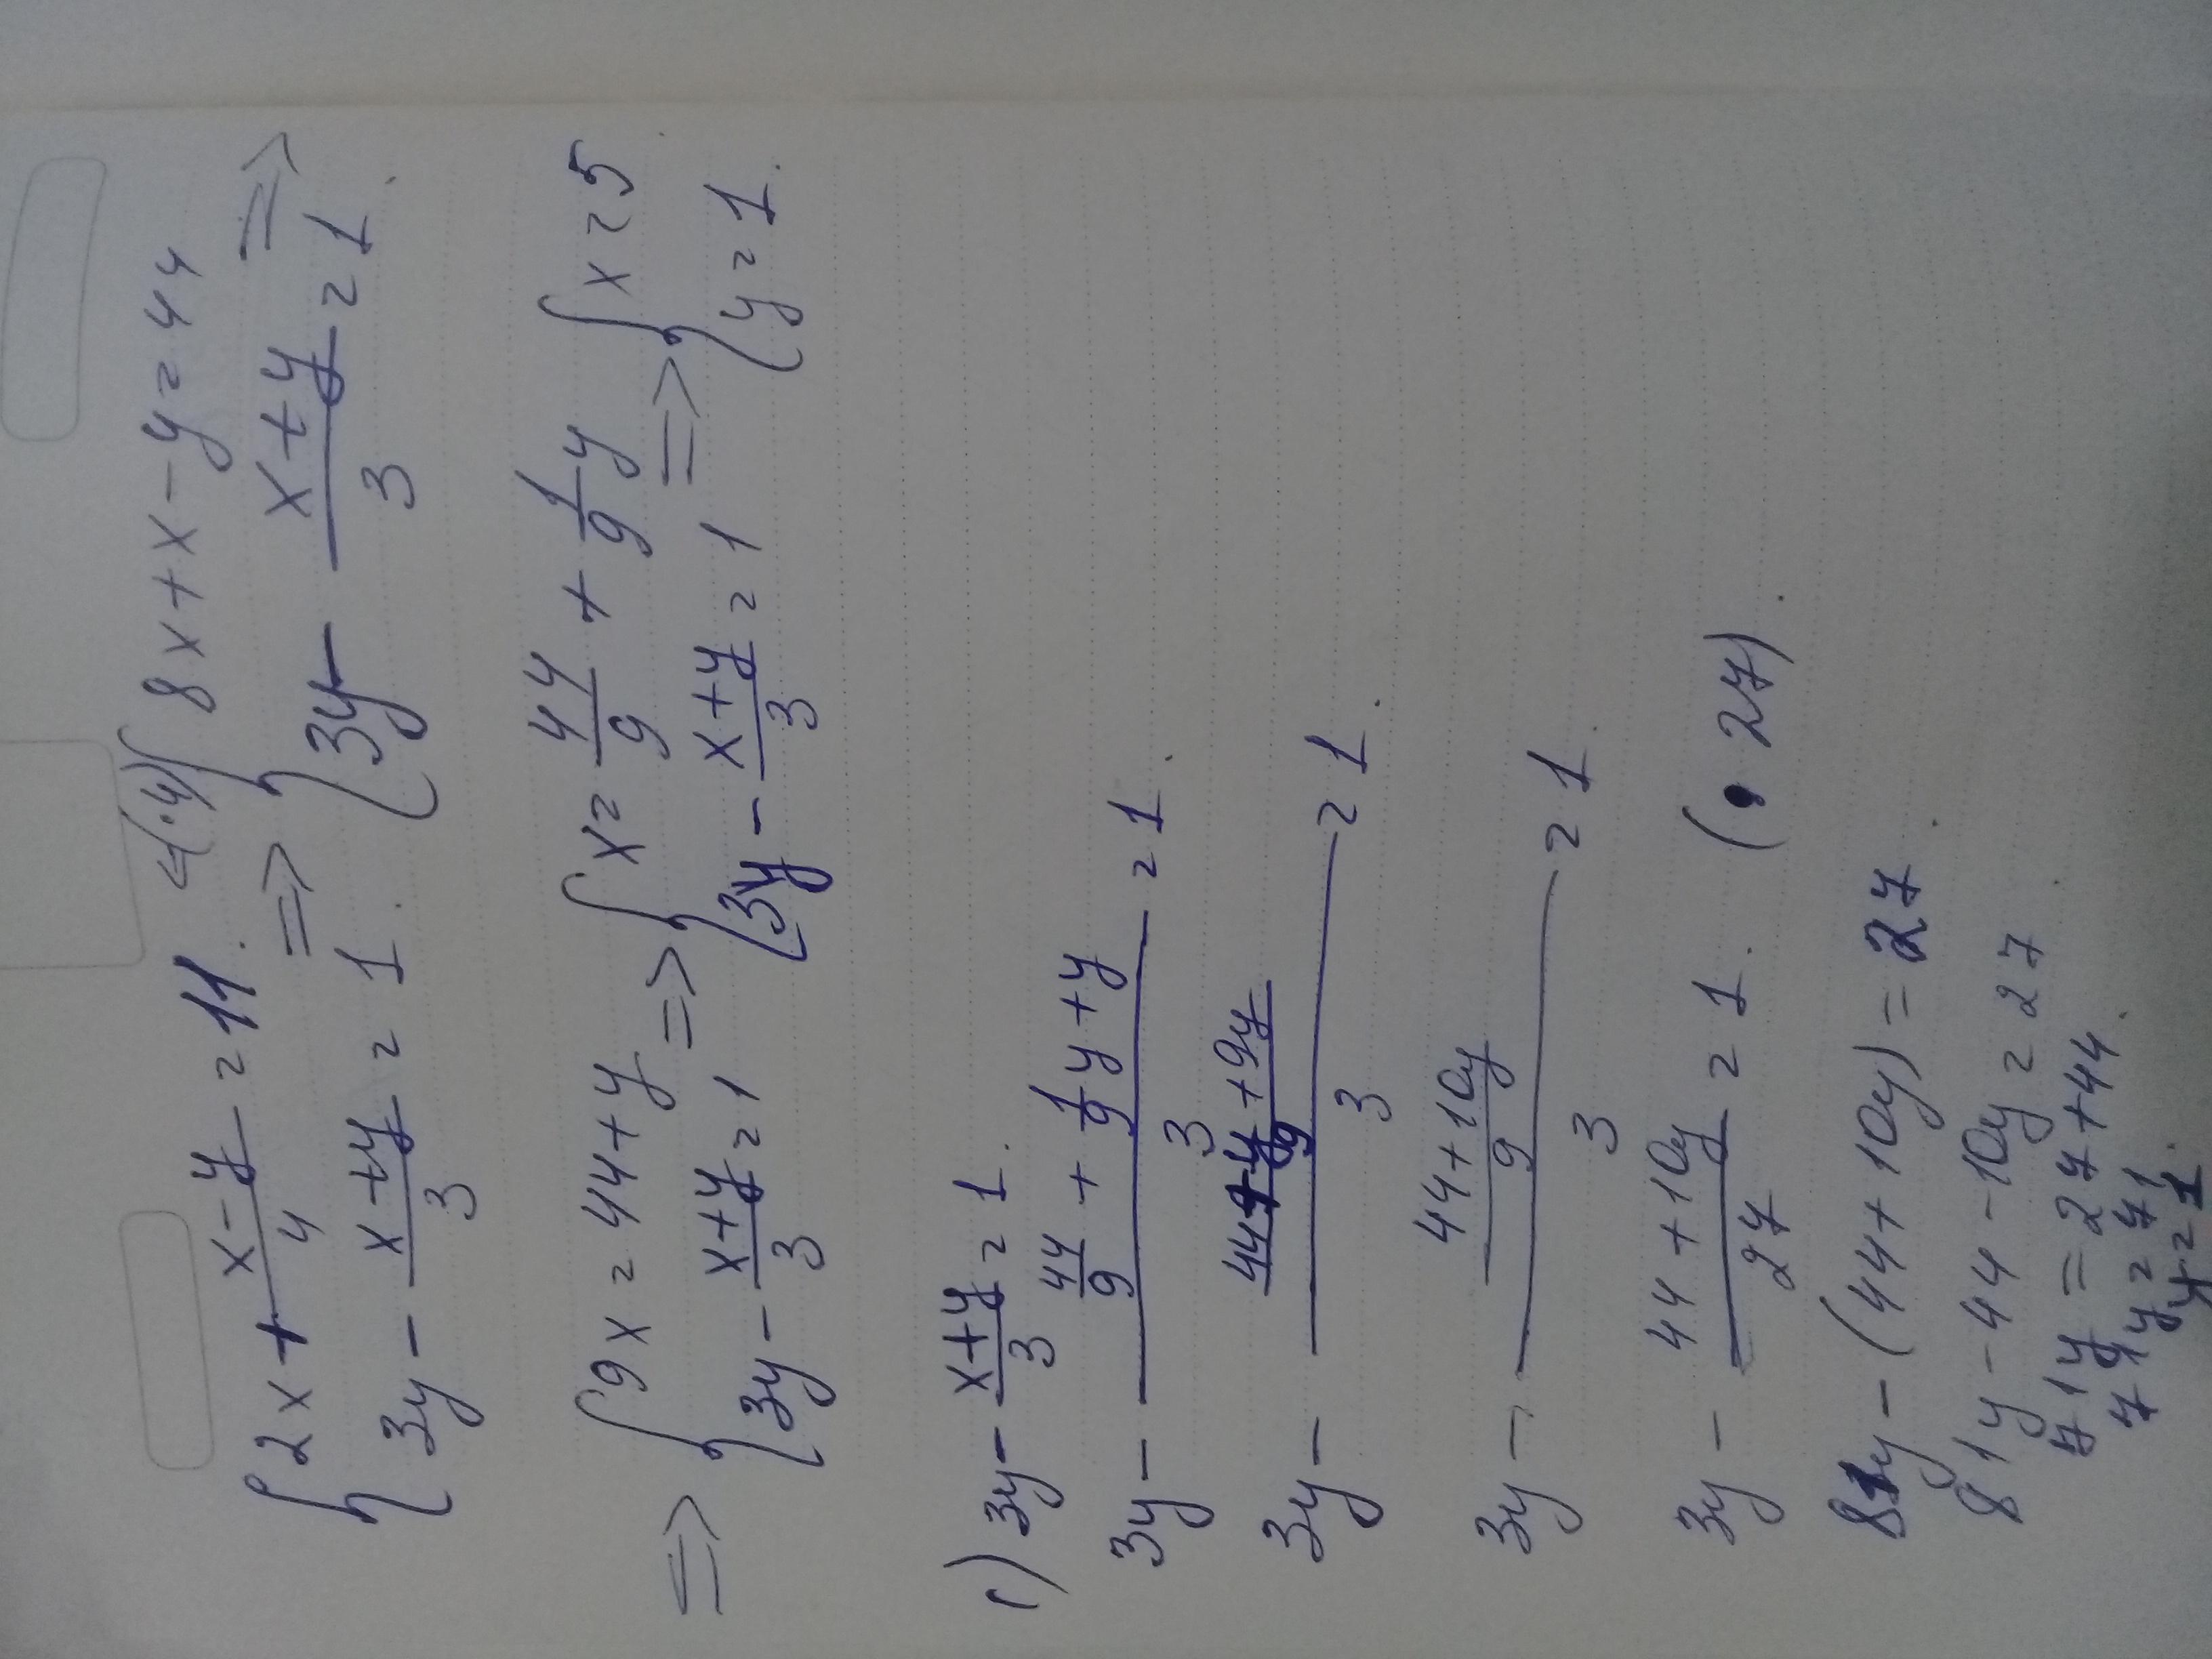 { 2x + (x-y)/4 = 11. (·4) => { 8x + x - y = 44
{ 3y - (x+y)/3 = 1. { 3y - (x+y)/3 = 1. =>
=> { 9x = 44 + y => { x = 44/9 + 1/9 y => { x = 5
{ 3y - (x+y)/3 = 1 { 3y - (x+y)/3 = 1 { y = 1.
1) 3y - (x+y)/3 = 1.
3y - (44/9 + 1/9 y + y)/3 = 1.
3y - ((44+y+9y)/9)/3 = 1.
3y - ((44+10y)/9)/3 = 1.
3y - (44+10y)/27 = 1. (·27).
81y - (44+10y) = 27.
81y - 44 - 10y = 27.
71y = 27+44.
71y = 71.
y = 1